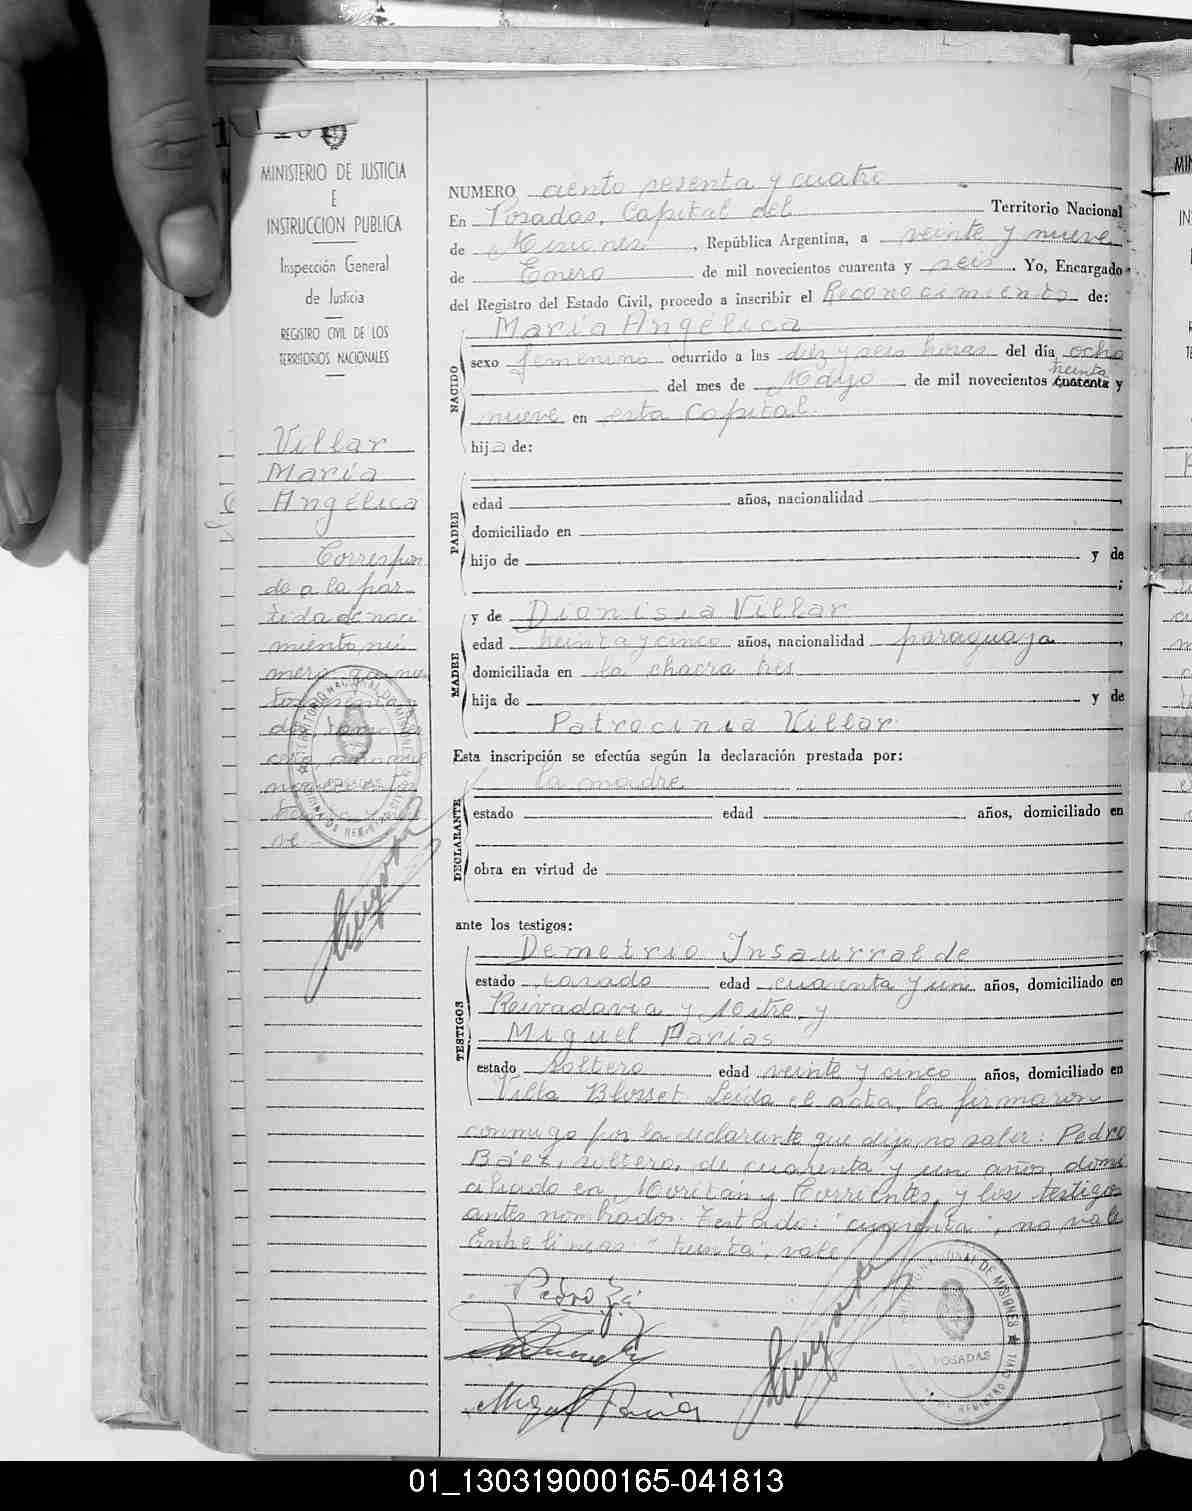 MINISTERIO DE JUSTICIA
E
INSTRUCCION PUBLICA
Inspección General
de Justicia
REGISTRO CIVIL DE LOS
TERRITORIOS NACIONALES
Villar
María
Angélica
Correspon
de a la par
tida de naci
miento nú
mero
ve
NUMERO ciento sesenta y cuatro
En Posadas, Capital del Territorio Nacional
de Misiones, República Argentina, a veinte y nueve
de Enero de mil novecientos cuarenta y seis. Yo, Encargado
del Registro del Estado Civil, procedo a inscribir el Reconocimiento de:
NACIDO
María Angélica
sexo femenino ocurrido a las diez y seis horas del día ocho
treinta
del mes de Mayo de mil novecientos cuarenta y
nueve en esta Capital.
hija de:
PADRE
edad años, nacionalidad ,
domiciliado en
hijo de y de
;
MADRE
y de Dionisia Villar
edad treinta y cinco años, nacionalidad paraguaya ,
domiciliada en la chacra tres
hija de y de
Patrocinia Villar.
Esta inscripción se efectúa según la declaración prestada por:
DECLARANTE
la madre
estado edad años, domiciliado en
obra en virtud de
ante los testigos:
TESTIGOS
Demetrio Insaurralde
estado casado edad cuarenta y un años, domiciliado en
Reivadavia y Mitre, y
Miguel Farias
estado soltero edad veinte y cinco años, domiciliado en
Villa Blosset. Leída el acta, la firmaron
conmigo por la declarante que dijo no saber: Pedro
Báez, soltero, de cuarenta y un años, domi
ciliado en Moritán y Corrientes, y los testigos
antes nombrados. Testado: "cuarenta", no vale
Entre lineas: "treinta", vale
Pedro
Miguel Farias
POSADAS
01_130319000165-041813